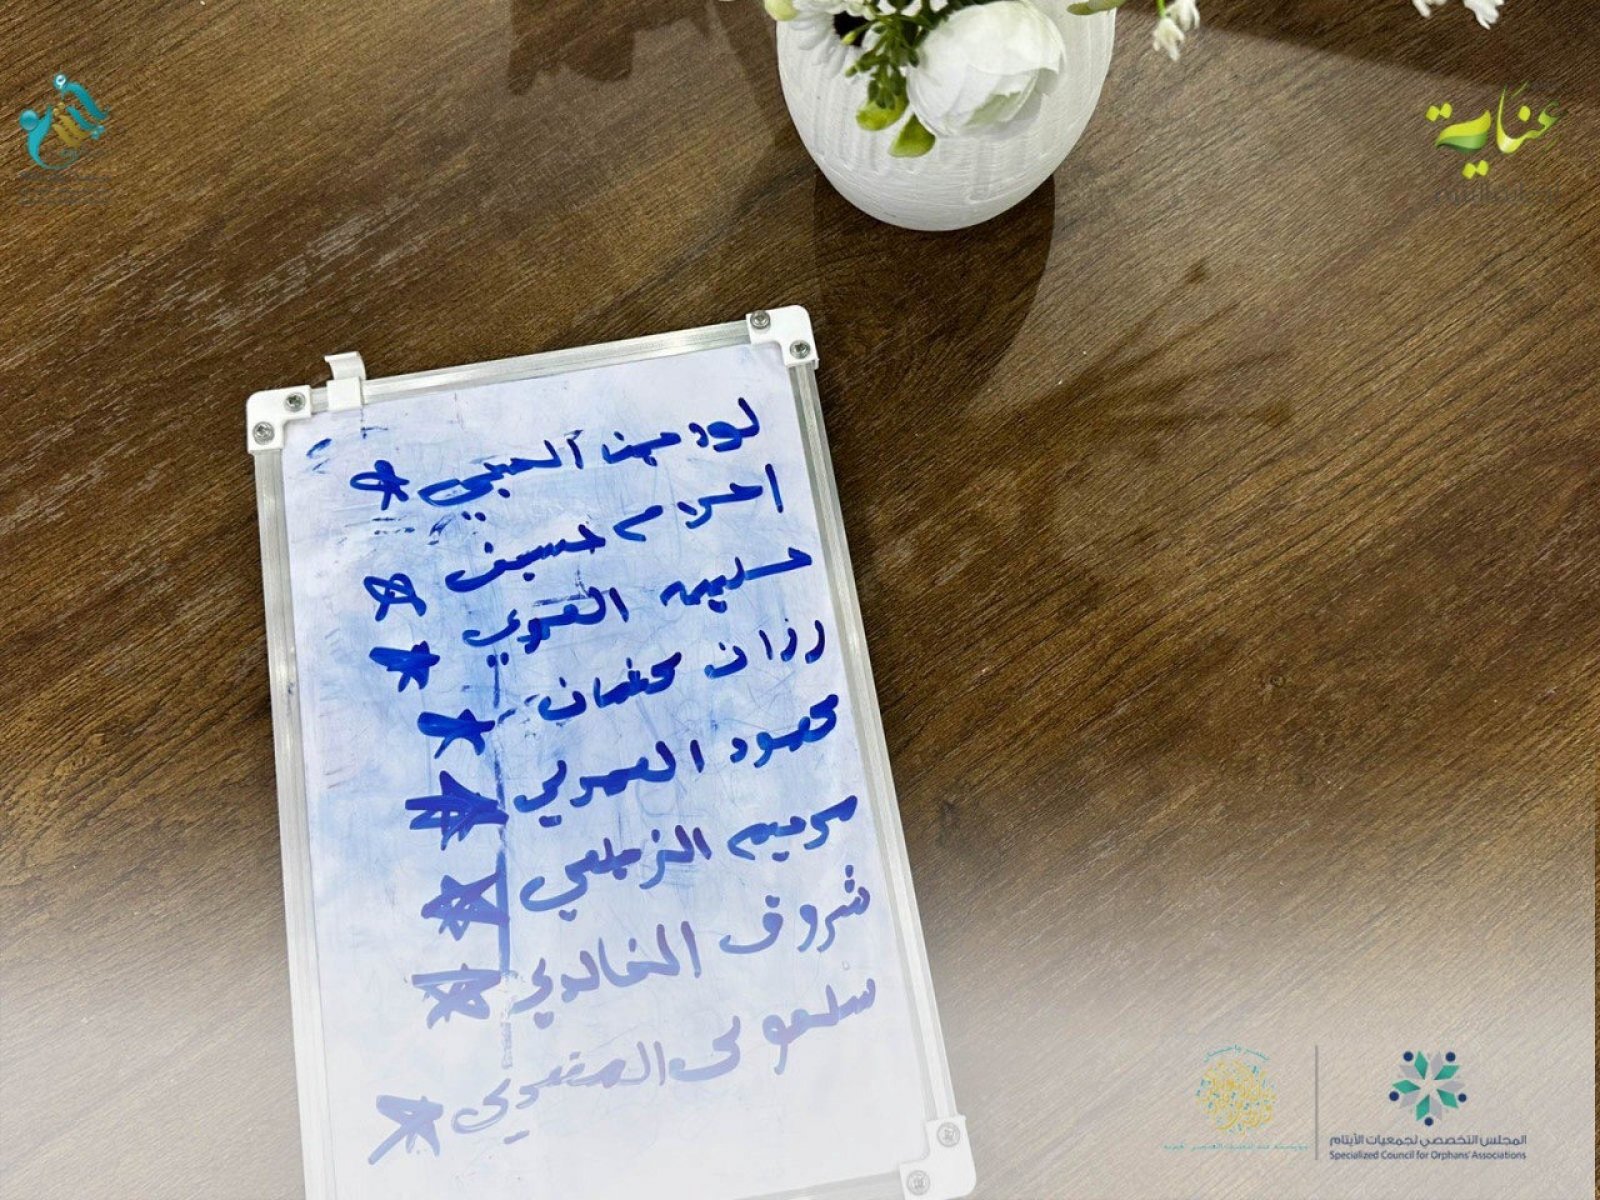 عناية
لودمين الحبي
احلام حسين
حليمه العمري
رزان عثمان
محمود العمري
مريم الزيلعي
شروق الخالدي
سلموى المنديي
المجلس التخصصي لجمعيات الأيتام
Specialized Council for Orphans' Associations